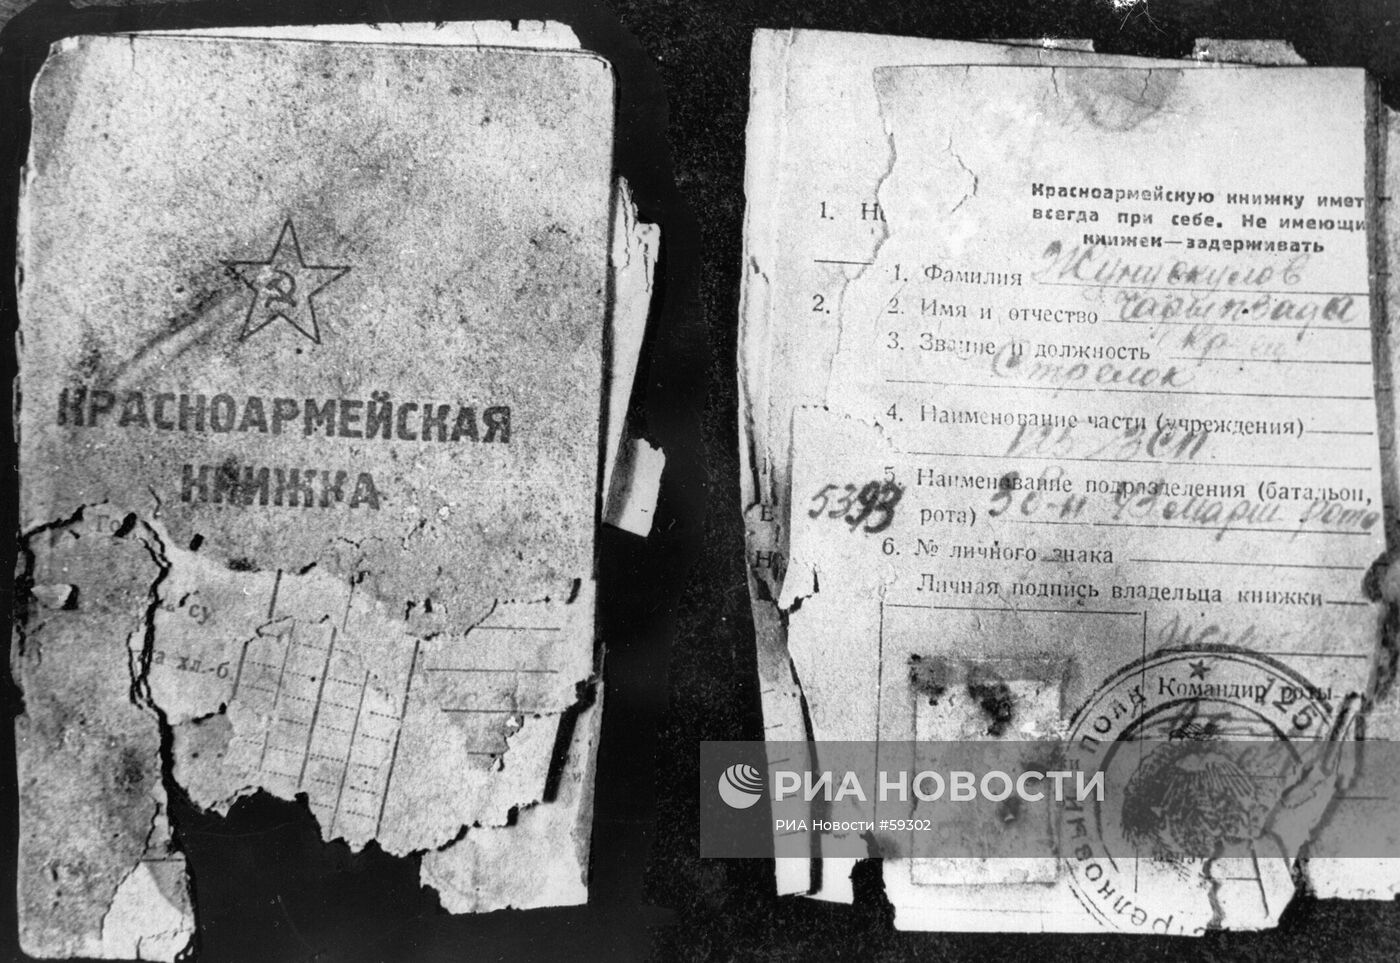 КРАСНОАРМЕЙСКАЯ
КНИЖКА
Го
су
та хл.-б
1. Н
2.
Красноармейскую книжку имет
всегда при себе. Не имеющи
книжек—задерживать
1. Фамилия Жунускулов
2. Имя и отчество
3. Звание и должность Кр-ец
Стрелок
4. Наименование части (учреждения)
125 ЗСП.
5. Наименование подразделения (батальон,
рота) 3 б-н 13 марш рота
5393
6. № личного знака
Личная подпись владельца книжки
Командир роты
ПОЛК ★ 125
СТРЕЛКОВЫЙ
РИА НОВОСТИ
РИА Новости #59302